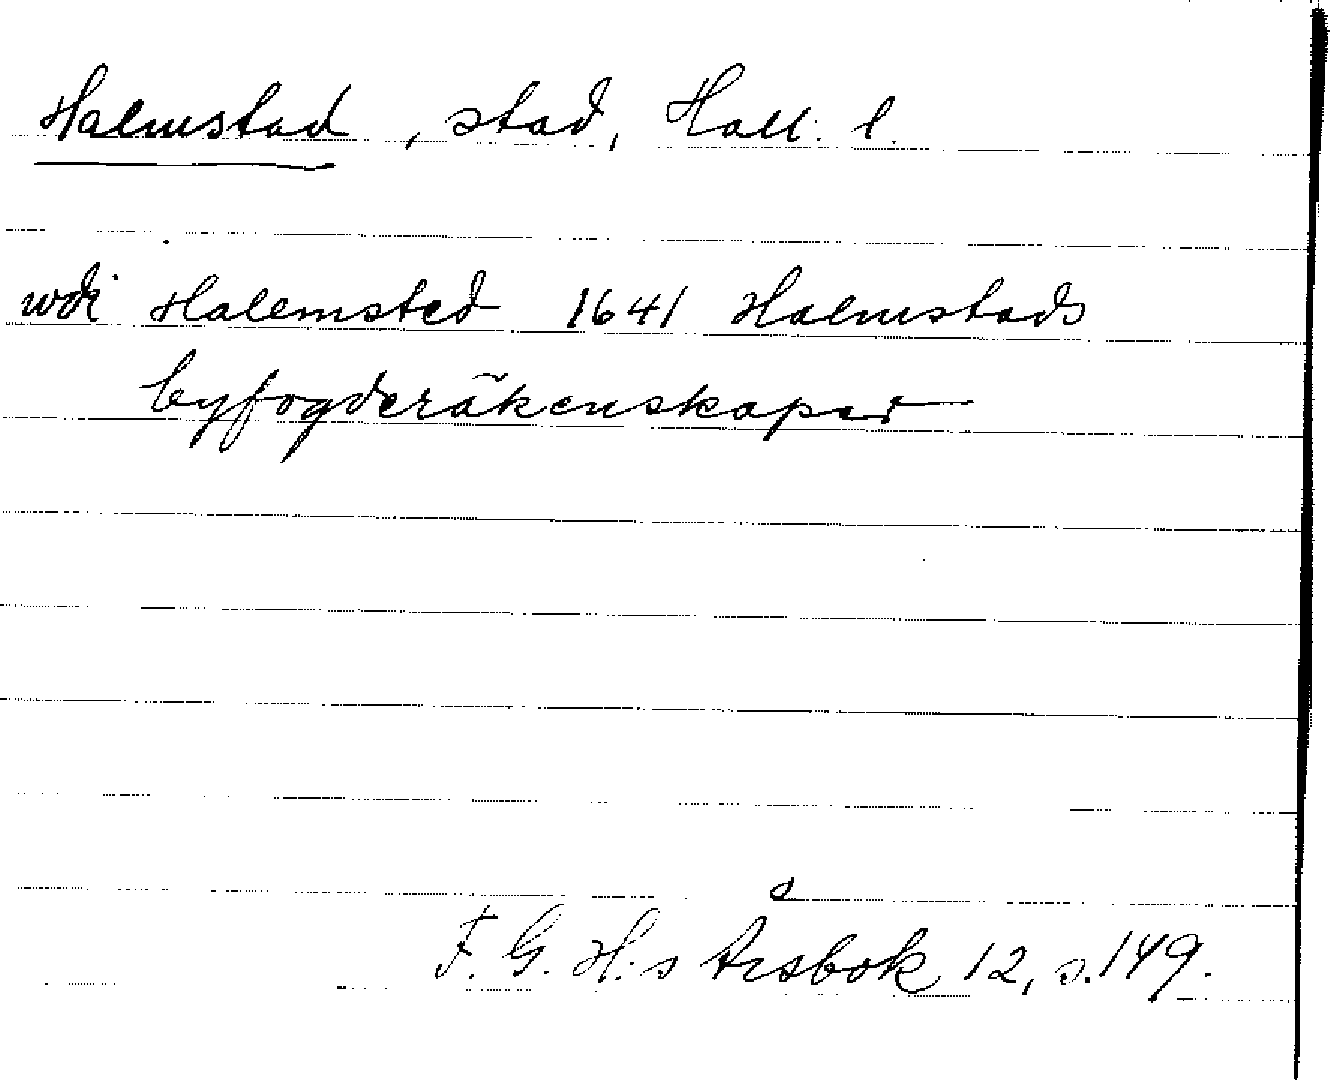 Halmstad, stad, Hall. l.
udi Halemsted 1641 Halmstads
byfogderäkenskaper
F. G. H:s Årsbok 12, s. 149.